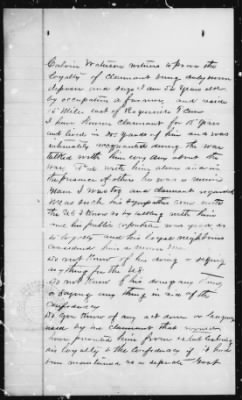 Calvin Waterson witness to prove the
loyalty of Claimant being duly sworn
deposes and says I am 52 Years old
by occupation a farmer, and reside
5 Miles east of
I have known Claimant for 15 Years
and lived in yards of him and was
intimately acquainted during the war
talked with him every day about the
war. with him alone and in
the presence of others he was a Union
Man I was too and claimant regarded
me as such his sympathies were with
the US I know so by talking with him
and his public reputation was good as
to loyalty and his loyal neighbors
considered him a Union Man
Do not know of his doing or saying
anything for the US
Do not know of his doing any thing
or saying any thing in aid of the
Confederacy
Do you know of any act done or language
used by claimant that would
have prevented him from establishing
his loyalty to the Confederacy if it had
been maintained as a separate Govt